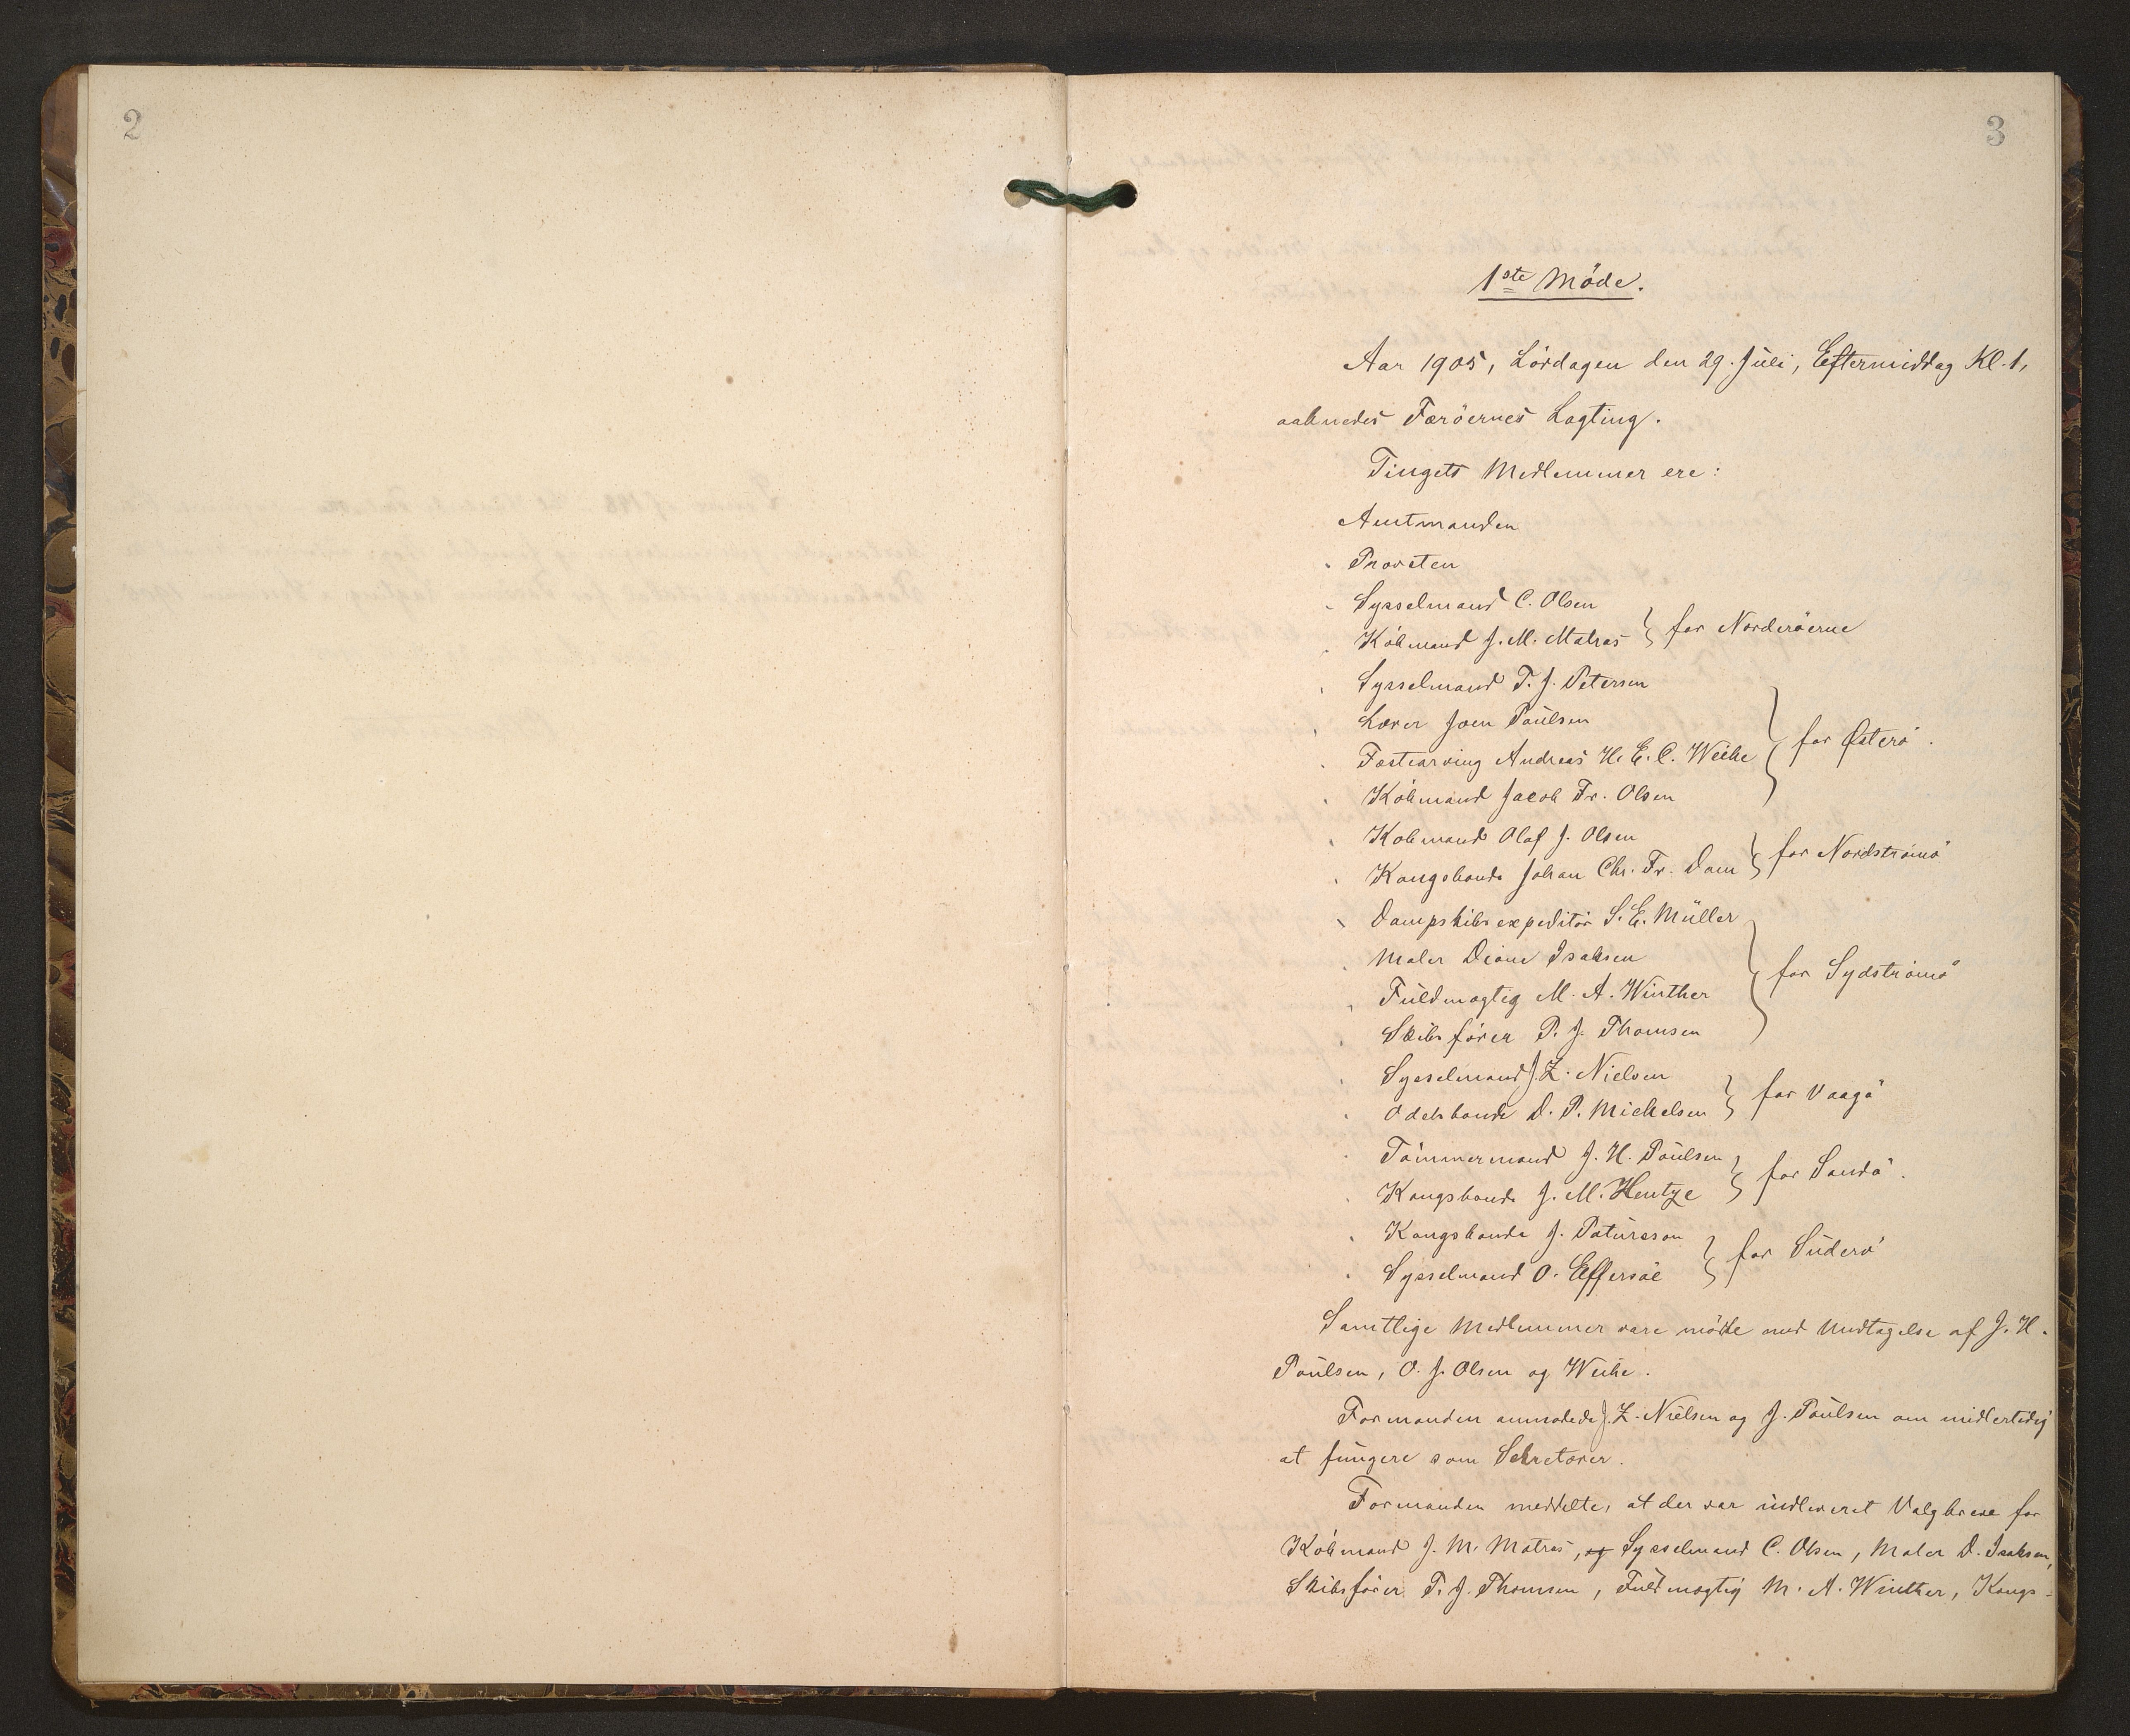 2
3
1ste Möde.
Aar 1905, Lördagen den 29. Juli, Eftermiddag Kl. 1,
aabnedes Færöernes Lagting.
Tingets Medlemmer ere:
Amtmanden
Provsten
Sysselmand C. Olsen
Köbmand J. M. Matras } for Norderöerne
Sysselmand T. J. Petersen
Lærer Joen Poulsen
Fæstearving Andreas H. E. C. Weihe } for Østerö.
Köbmand Jacob Fr. Olsen
Kobmand Olaf J. Olsen
Kongsbonde Johan Chr. Fr. Dam } for Nordströmö
Dampskibsexpeditör S. E. Müller
Maler Dione Isaksen } for Sydströmö
Fuldmægtig M. A. Winther
Skibsförer P. J. Thomsen
Sysselmand J. Z. Nielsen
Odelsbonde D. P. Michelsen } for Vaagö
Tömmermand J. H. Poulsen
Kongsbonde J. M. Hentze } for Sandö.
Kongsbonde J. Patursson
Sysselmand O. Effersöe } for Süderö
Samtlige Medlemmer vare mödte med Undtagelse af J. H.
Poulsen, O. J. Olsen og Weihe.
Formanden anmodede J. Z. Nielsen og J. Poulsen om midlertidig
at fungere som Sekretærer.
Formanden meddelte, at der var indleveret Valgbreve for
Köbmand J. M. Matras, og Sysselmand C. Olsen, Maler D. Isaksen,
Skibsförer P. J. Thomsen, Fuldmægtig M. A. Winther, Kongs-